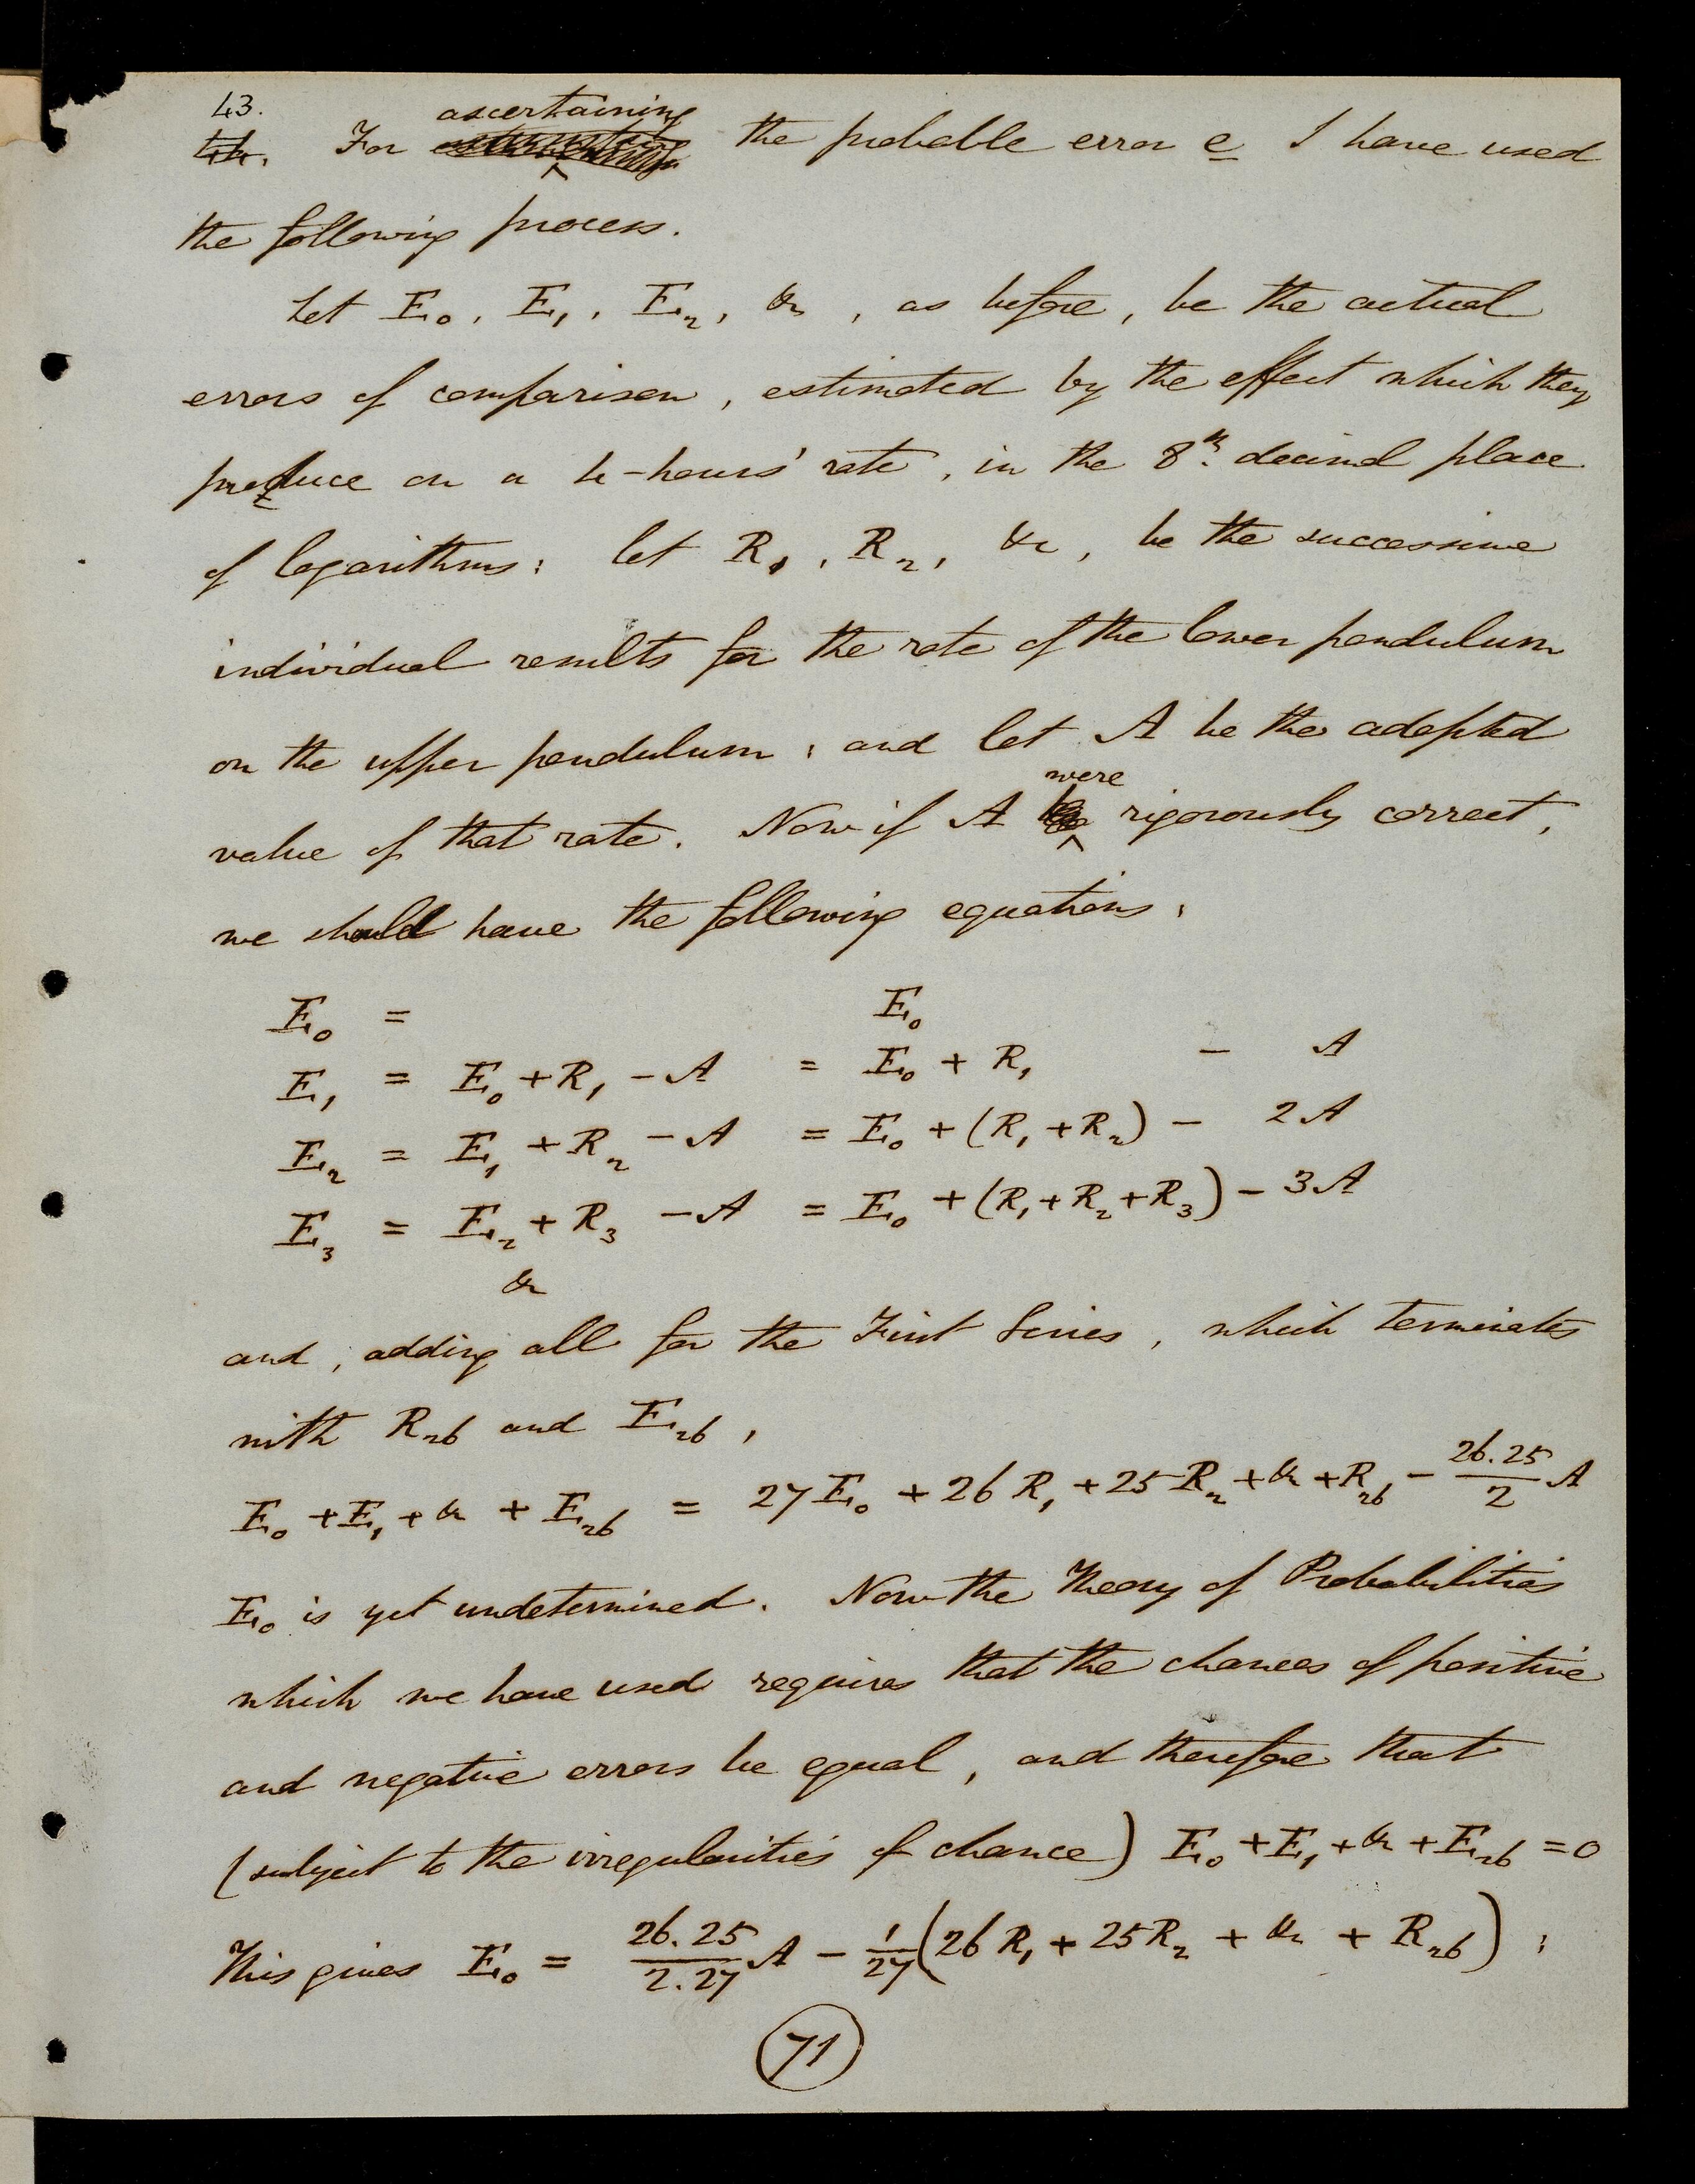 43.
44. For ascertaining the probable error e I have used
the following process.
Let E₀, E₁, E₂, &c, as before, be the actual
errors of comparison, estimated by the effect which they
produce on a 4-hours' rate, in the 8th decimal place
of logarithms: let R₁, R₂, &c, be the successive
individual results for the rate of the lower pendulum
on the upper pendulum: and let A be the adopted
value of that rate. Now if A were rigorously correct,
we should have the following equations:
E₀ = E₀
E₁ = E₀ + R₁ - A = E₀ + R₁ - A
E₂ = E₁ + R₂ - A = E₀ + (R₁ + R₂) - 2A
E₃ = E₂ + R₃ - A = E₀ + (R₁ + R₂ + R₃) - 3A
&c
and, adding all for the First Series, which terminates
with R₂₆ and E₂₆,
E₀ + E₁ + &c + E₂₆ = 27E₀ + 26R₁ + 25R₂ + &c + R₂₆ - 26.25/2 A
E₀ is yet undetermined. Now the Theory of Probabilities
which we have used requires that the chances of positive
and negative errors be equal, and therefore that
(subject to the irregularities of chance) E₀ + E₁ + &c + E₂₆ = 0
This gives E₀ = 26.25/2.27 A - 1/27 (26R₁ + 25R₂ + &c + R₂₆);
71